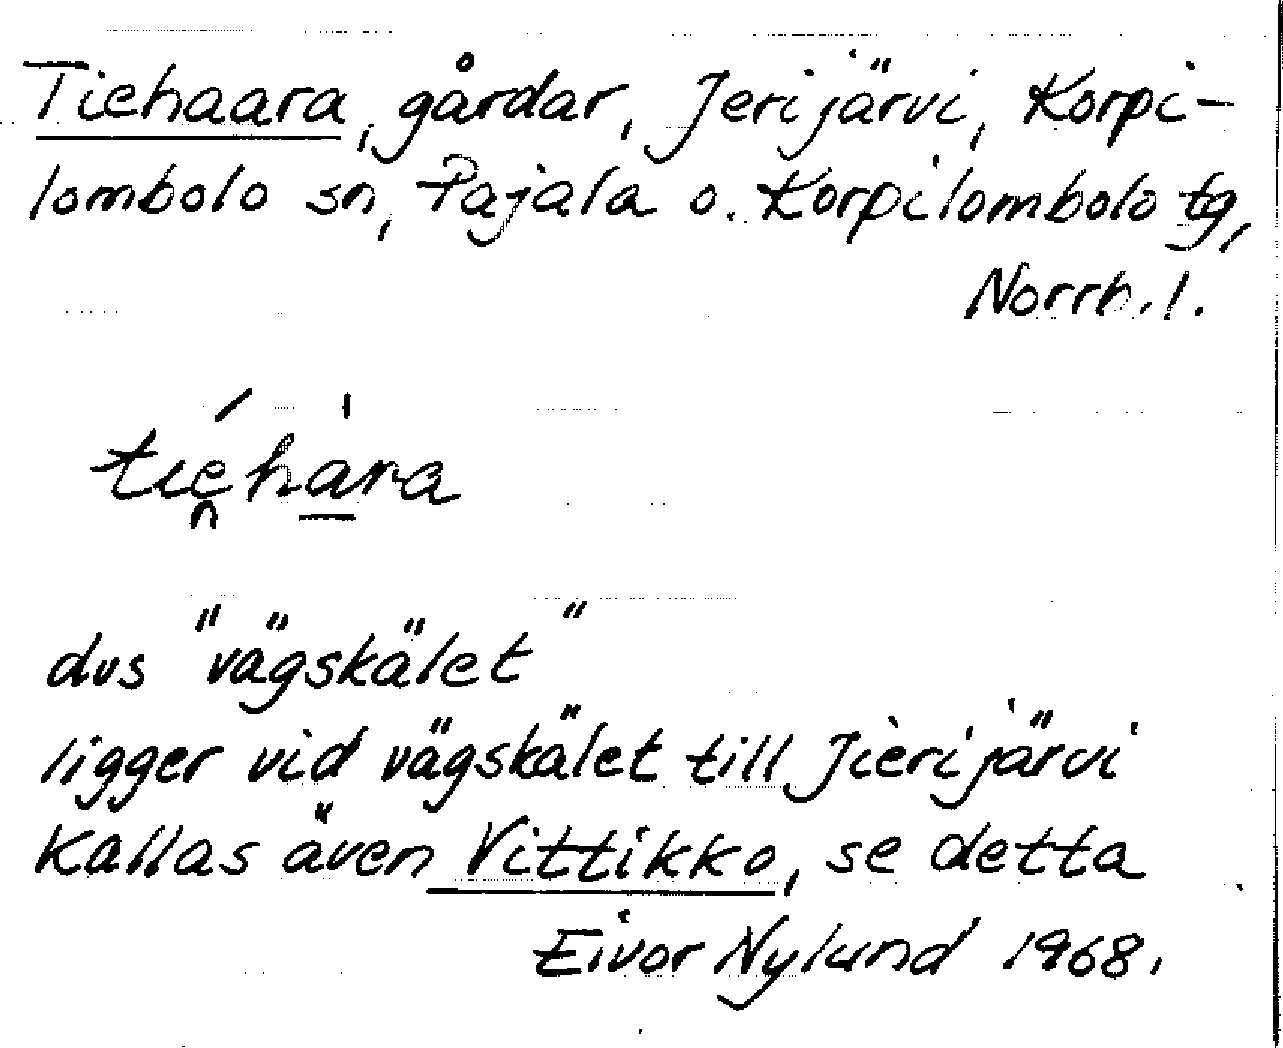 Tiehaara, gårdar, Jerijärvi, Korpi-
lombolo sn, Pajala o. Korpilombolo tg,
Norrb. l.
tiehara
dvs "vägskälet"
ligger vid vägskälet till Jierijärvi
Kallas även Vittikko, se detta
Eivor Nylund 1968.